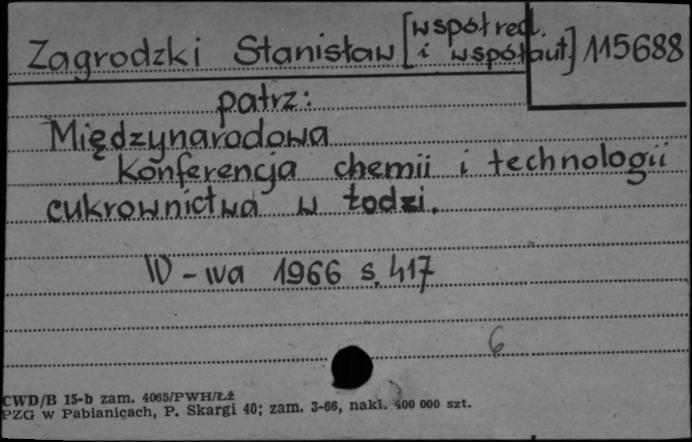 Zagrodzki Stanisław [współred. i współaut.] 115688
patrz:
Międzynarodowa
konferencja chemii i technologii
cukrownictwa w Łodzi.
W-wa 1966 s. 417
6
CWD/B 15-b zam. 4065/PWH/Łź
PZG w Pabianicach, P. Skargi 40; zam. 3-66, nakł. 400 000 szt.